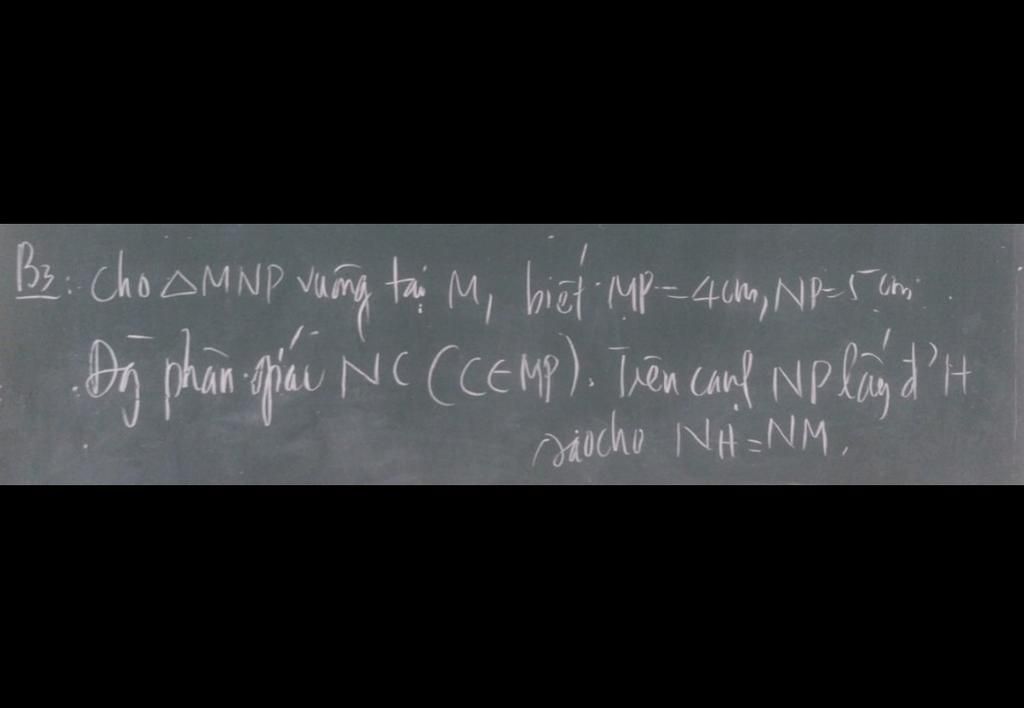 B3: Cho △MNP vuông tại M, biết MP=4cm, NP=5cm.
Đg phân giác NC (C∈MP). Trên cạnh NP lấy đ' H
sao cho NH=NM.